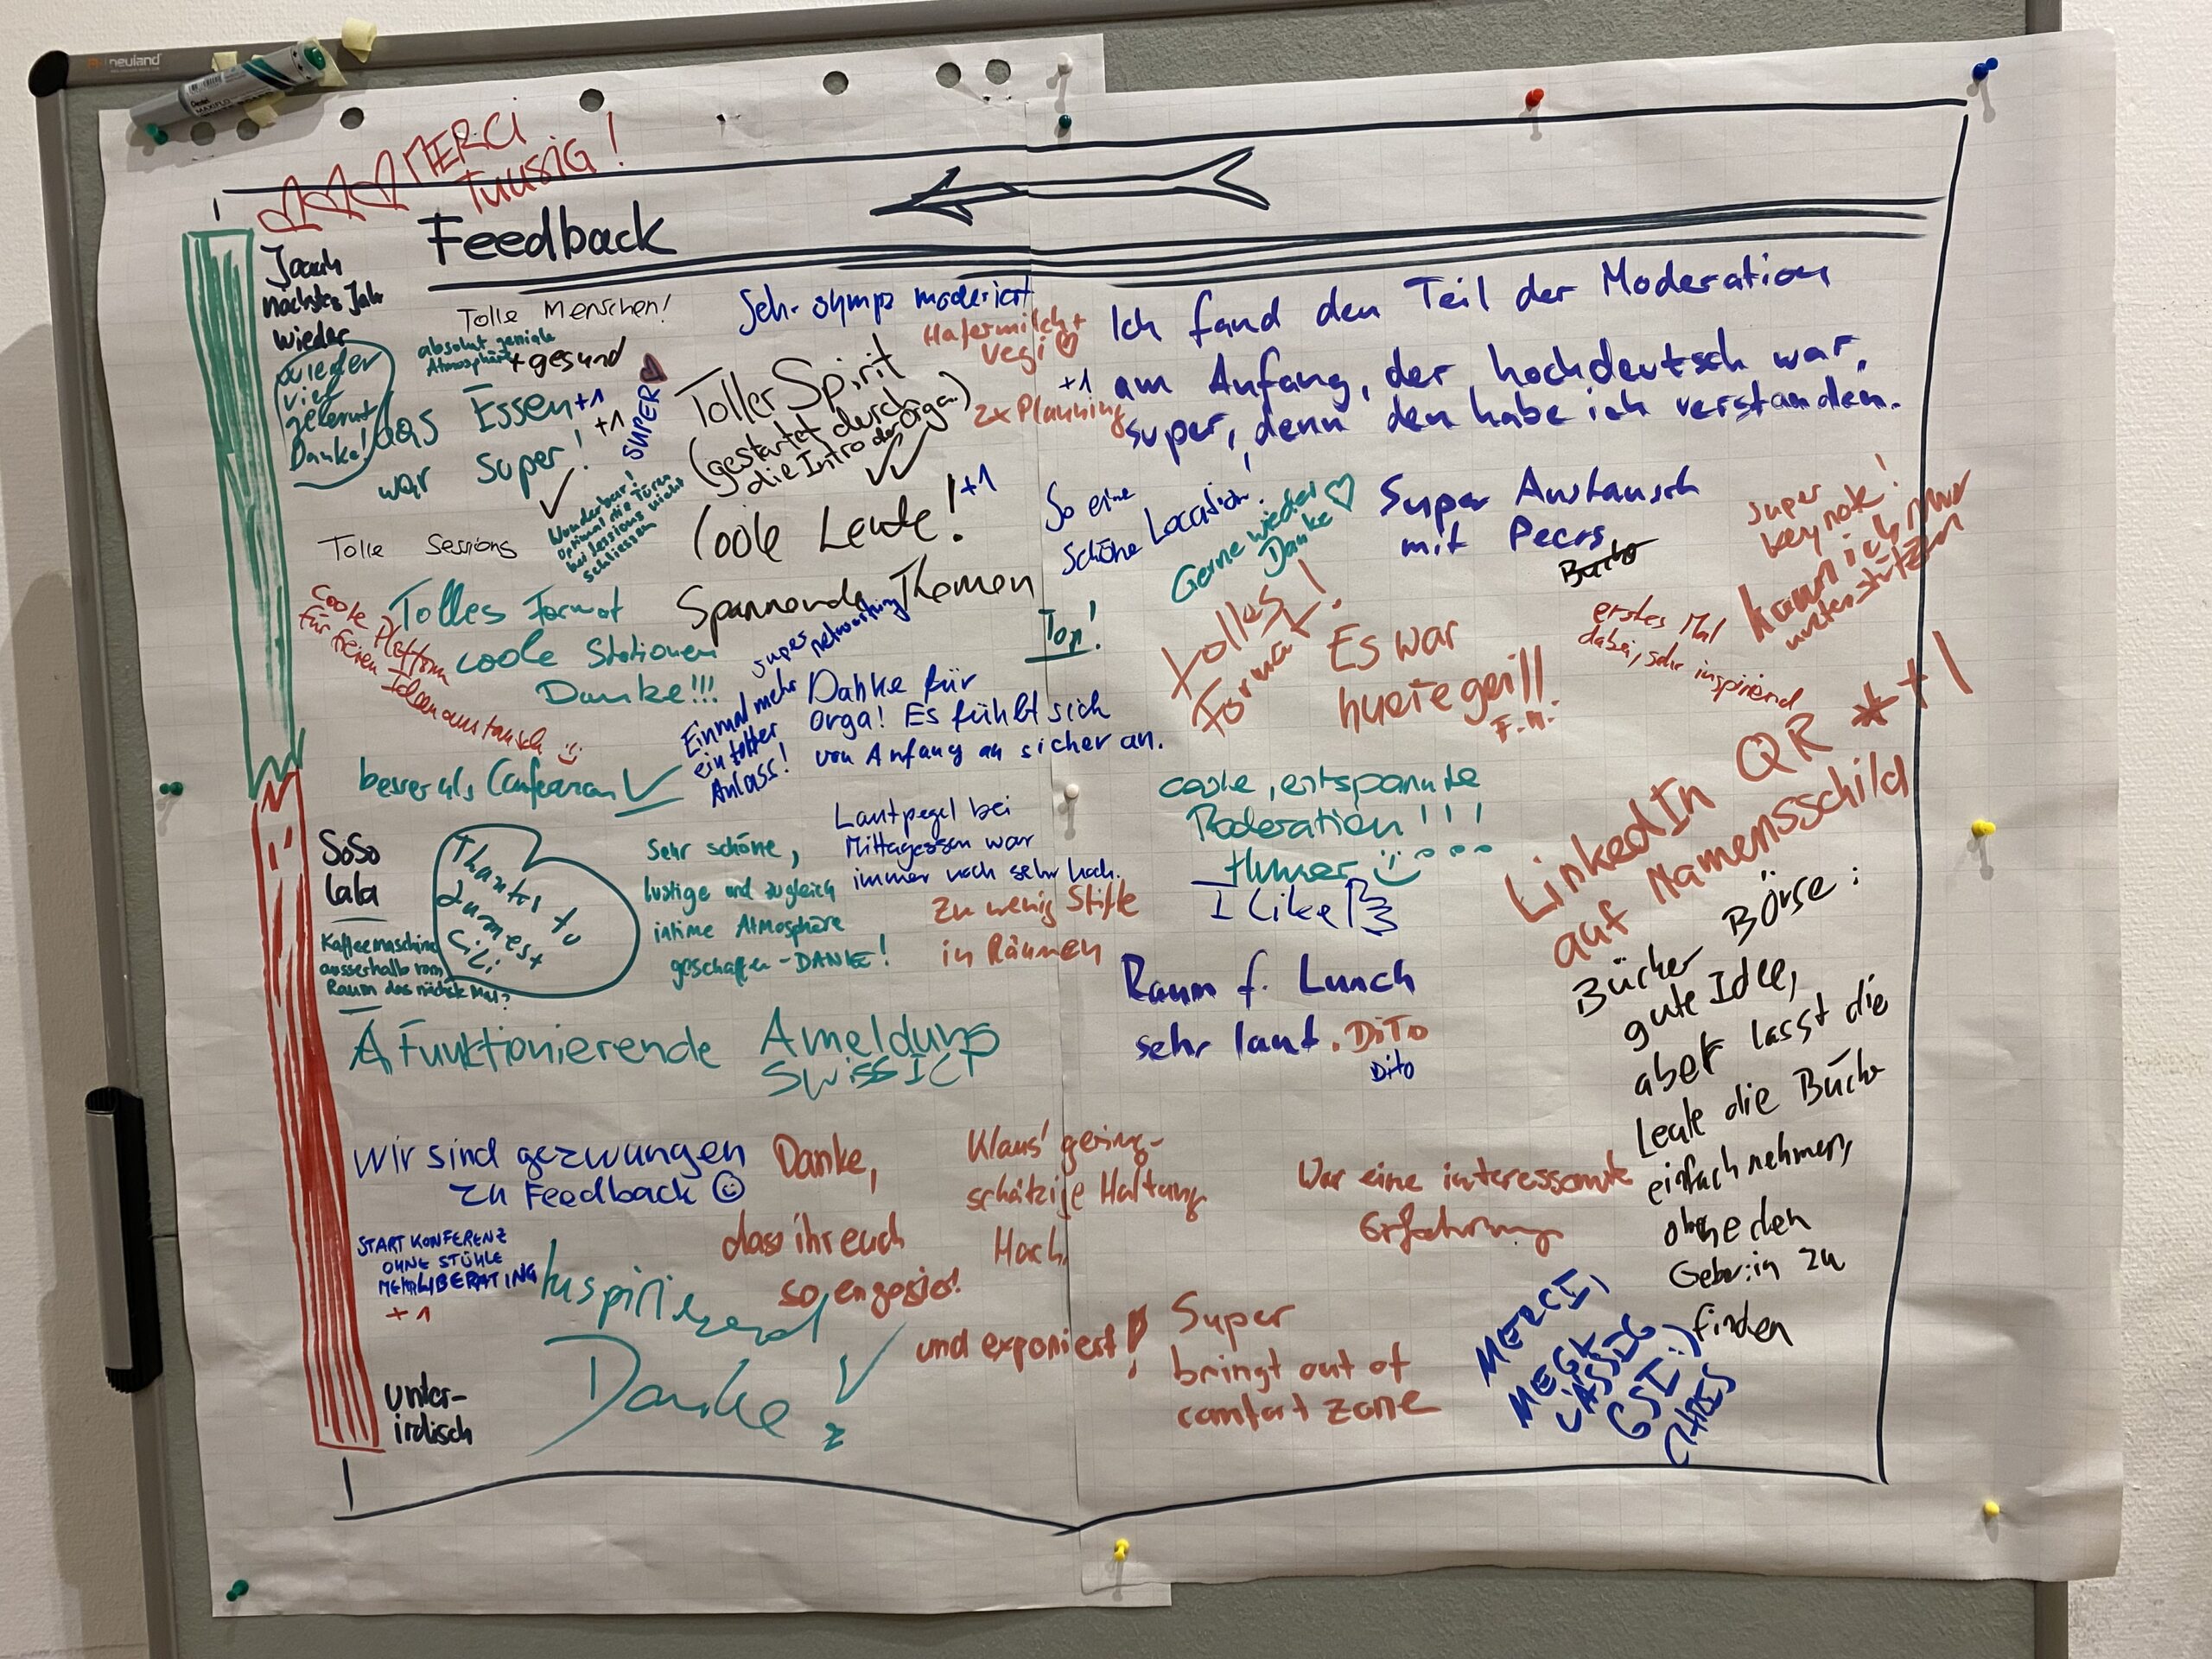 neuland
MERCI
TUUSIG!
Feedback
Jaaah
nächstes Jahr
wieder
wieder
viel
gelernt
Danke!
Tolle Menschen!
absolut geniale
Atmosphäre
+gesund
das Essen +1
+1
war super!
SUPER
Sehr sympa moderiert
Hafermilch +
Vegi
+1
2x Planning
Toller Spirit
(gestartet durch
die Intro der Orga)
Ich fand den Teil der Moderation
am Anfang, der hochdeutsch war,
super, denn den habe ich verstanden.
Wunderbar!
Optimal die Türen
bei Sessions nicht
schliessen
Coole Leute! +1
Tolle Sessions
So eine
schöne Location!
Gerne wieder
Danke
Super Austausch
mit Peers
super
keynote!
kann ich nur
unterstützen
Tolles Format
coole Stationen
Danke!!!
Coole Plattform
für freien Ideenaustausch
Spannende Themen
super
networking
Top!
tolles
Format!
Es war
huere geil!!
F.M.
erstes Mal
dabei, sehr inspirierend
Einmal mehr
ein toller
Anlass!
Danke für
Orga! Es fühlt sich
von Anfang an sicher an.
besser als Confearan
LinkedIn QR *+1
auf Namensschild
coole, entspannte
Moderation!!!
Humor
I Like
Soso
lala
Kaffeemaschine
ausserhalb vom
Raum das nächste Mal?
Thanks to
Sehr schöne,
lustige und zugleich
intime Atmosphäre
geschaffen - DANKE!
Lautpegel bei
Mittagessen war
immer noch sehr hoch.
Zu wenig Stifte
in Räumen
Raum f. Lunch
sehr laut. DITO
Dito
Bücher Börse:
gute Idee,
aber lasst die
Leute die Bücher
einfach nehmen,
ohne den
Geber:in zu
finden
Funktionierende Ameldung
SwissICT
Wir sind gezwungen
zu Feedback
Danke,
dass ihr euch
so engagiert
und exponiert!
Klaus' gering-
schätzige Haltung
Hach.
War eine interessante
Erfahrung
START KONFERENZ
OHNE STÜHLE
MEHR LIBERATING
+1
Inspirierend
Danke
Super
bringt out of
comfort zone
MERCI,
MEGA
LÄSSIG
GSI :)
unter-
irdisch